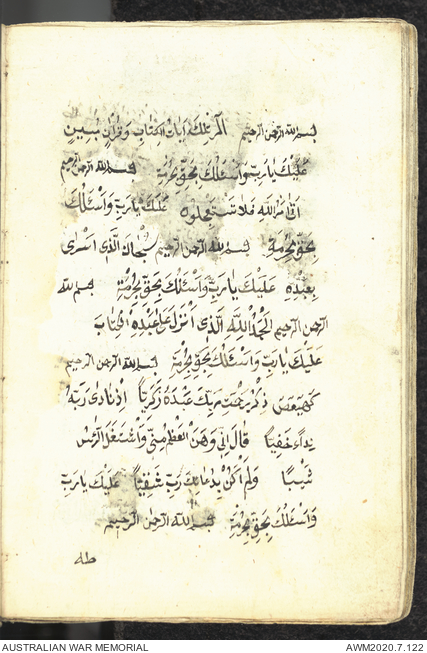 بسم الله الرحمن الرحيم الر تلك ايات الكتاب وقران مبين
عليك يا رب واسئلك بحق بحرمة بسم الله الرحمن الرحيم
اتى امر الله فلا تستعجلوه عليك يا رب واسئلك
بحق بحرمة بسم الله الرحمن الرحيم سبحان الذى اسرى
بعبده عليك يا رب واسئلك بحق بحرمة بسم الله
الرحمن الرحيم الحمد لله الذى انزل على عبده الكتاب
عليك يا رب واسئلك بحق بحرمة بسم الله الرحمن الرحيم
كهيعص ذكر رحمت ربك عبده زكريا اذ نادى ربه
نداء خفيا قال انى وهن العظم منى واشتعل الرئس
شيبا ولم اكن بدعائك رب شقيا عليك يا رب
واسئلك بحق بحرمة بسم الله الرحمن الرحيم
طه
AUSTRALIAN WAR MEMORIAL AWM2020.7.122